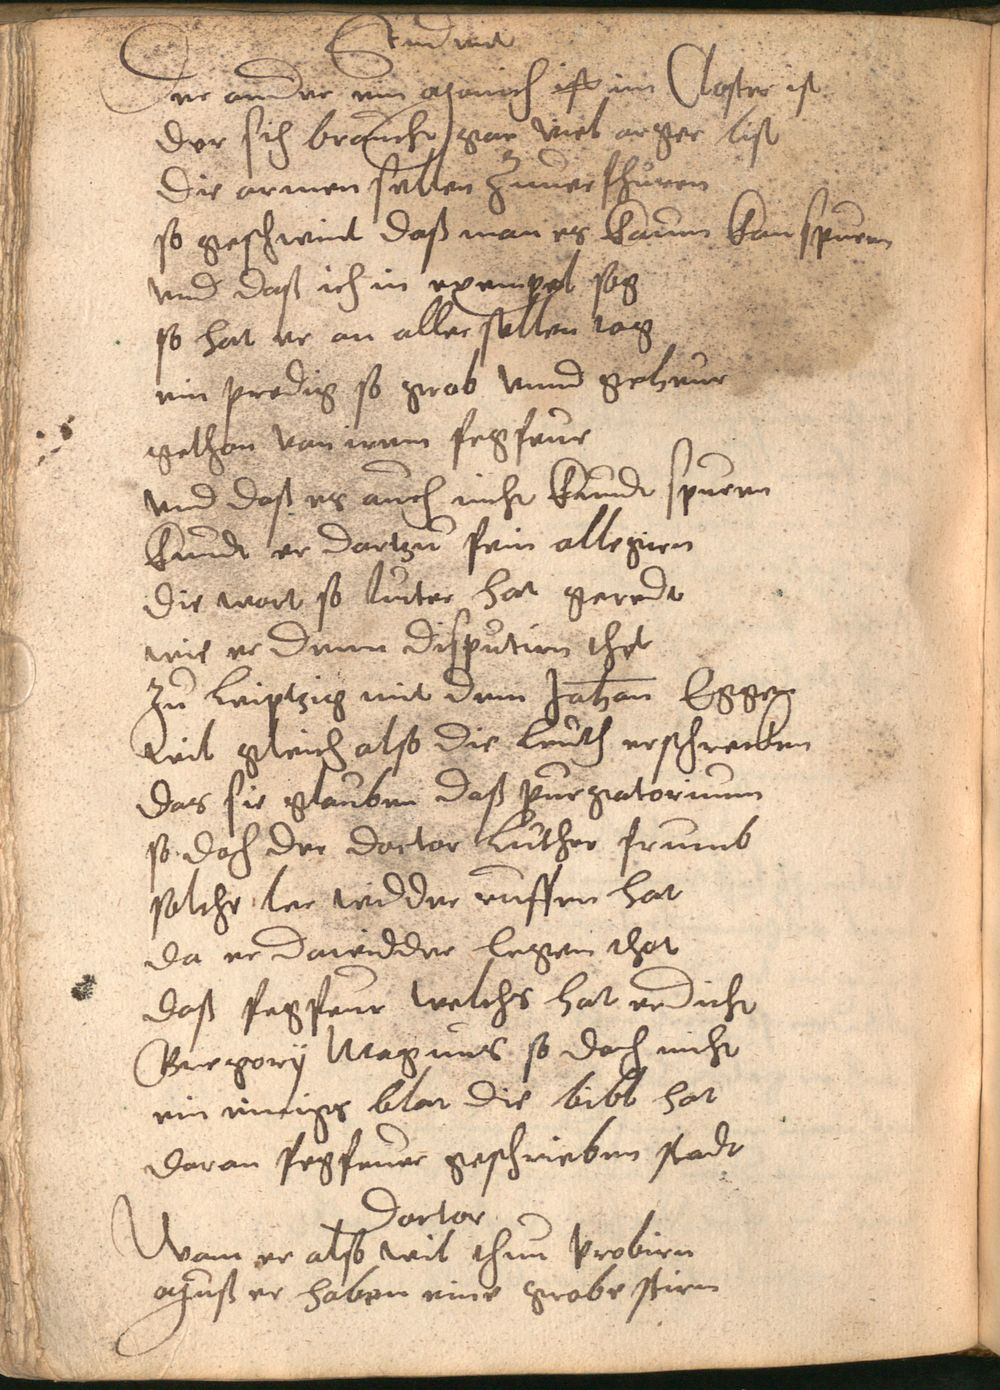 Student
Der ander ein Monich ist im Closter ist
der sich braucht gar viel arger list
die armen sellen Zuuerfhuren
so geschwint daß man es kaum kan spuren
vnd daß ich in exempel sag
so hat er an aller sellen tag
ein predig so grob vnnd geheur
gethan von irem fegfeur
vnd daß es auch nicht kundt spuren
kundt er dartzu fein allegiren
die wort so luter hat geredt
wie er denn disputirn thet
Zu leiptzig mit dem Johan Eggen
wil gleich also die leuth erschrecken
das sie glauben daß purgatorium
so doch der doctor Luther frumb
solche ler widder ruffen hat
da er dawidder legen that
daß fegfeur welchs hat erdicht
Gregorij Magnus so doch nicht
ein einigs blat die bibl hat
daran fegfeuer geschrieben stadt
Doctor
Wan er also wil thun probirn
Muß er haben eine grobe stirn